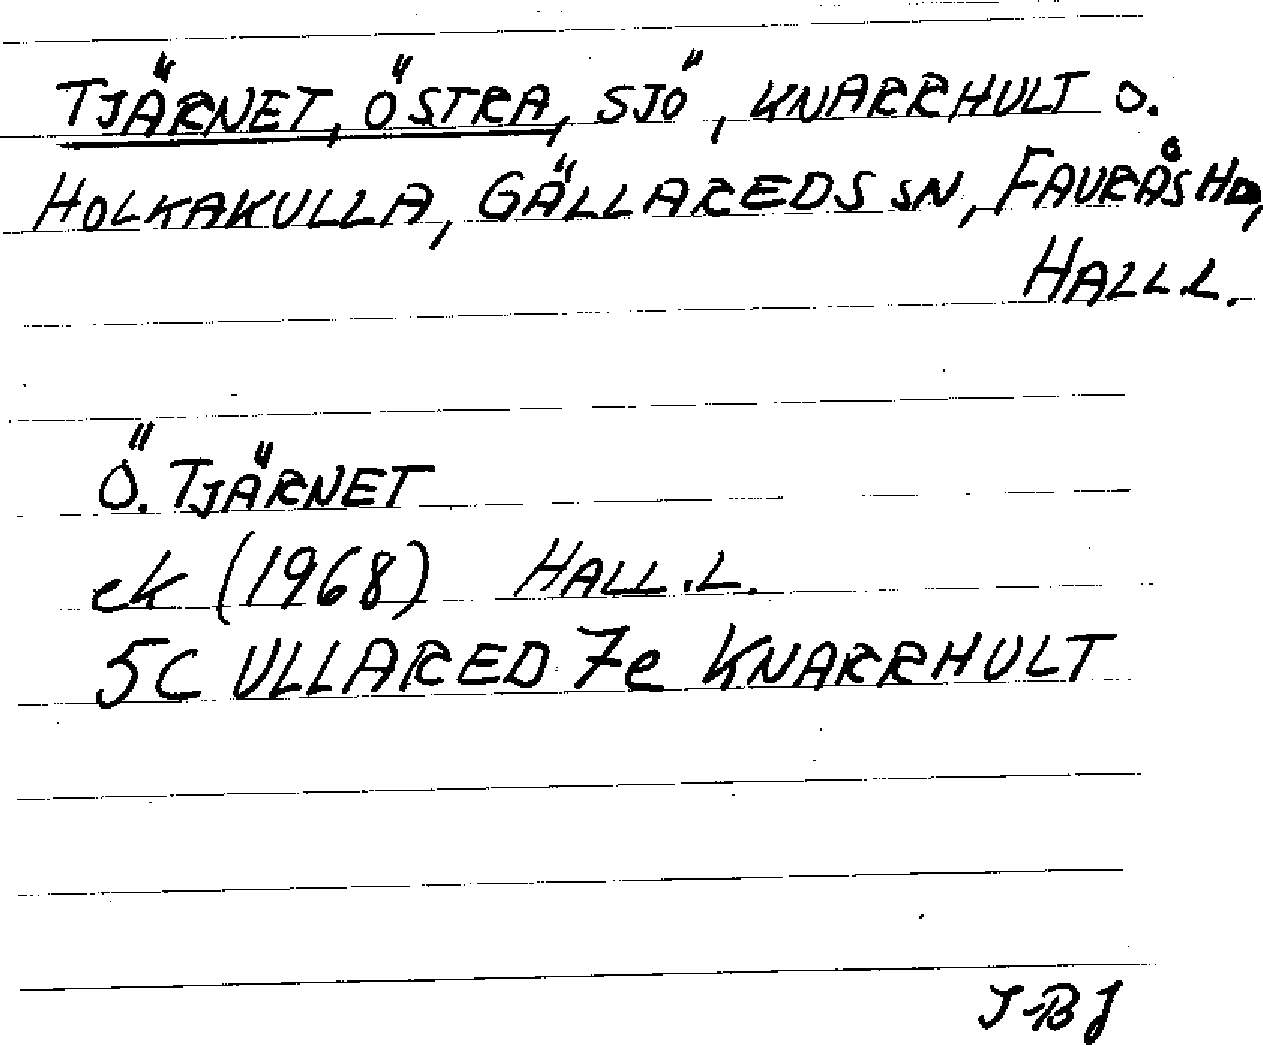 TJÄRNET, ÖSTRA, SJÖ, KNARRHULT O.
HOLKAKULLA, GÄLLAREDS SN, FAURÅS HD,
HALL.L.
Ö. TJÄRNET
ek (1968) HALL.L.
5C ULLARED 7e KNARRHULT
IBJ